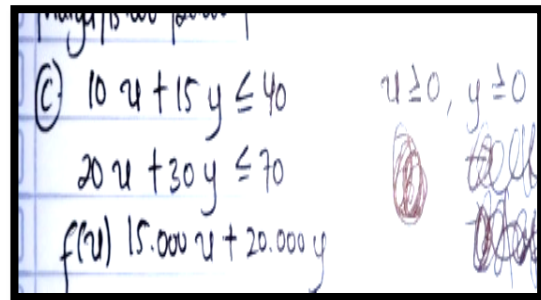 Ⓒ 10 u + 15 y ≤ 40 u ≥ 0, y ≥ 0
20 u + 30 y ≤ 70
f(u) 15.000 u + 20.000 y